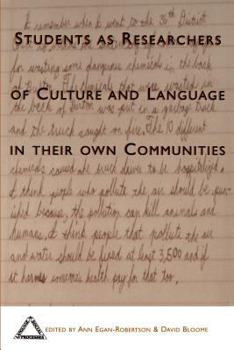 I remember when I went to the 36th District
STUDENTS AS RESEARCHERS
for writing some dangerous chemicals in the back
OF CULTURE AND LANGUAGE
the back of was put in a garbage truck
and the truck caught on fire. The 10 different
IN THEIR OWN COMMUNITIES
chemicals caused the truck driver to be hospitalized.
I think people who pollute the air should be pun-
ished because, the pollution can kill animals and
humans. I think people that pollute the air
and water should be fined at least 3,500 and if
it harms someone's health pay for that too.
PROCESSES
EDITED BY ANN EGAN-ROBERTSON & DAVID BLOOME